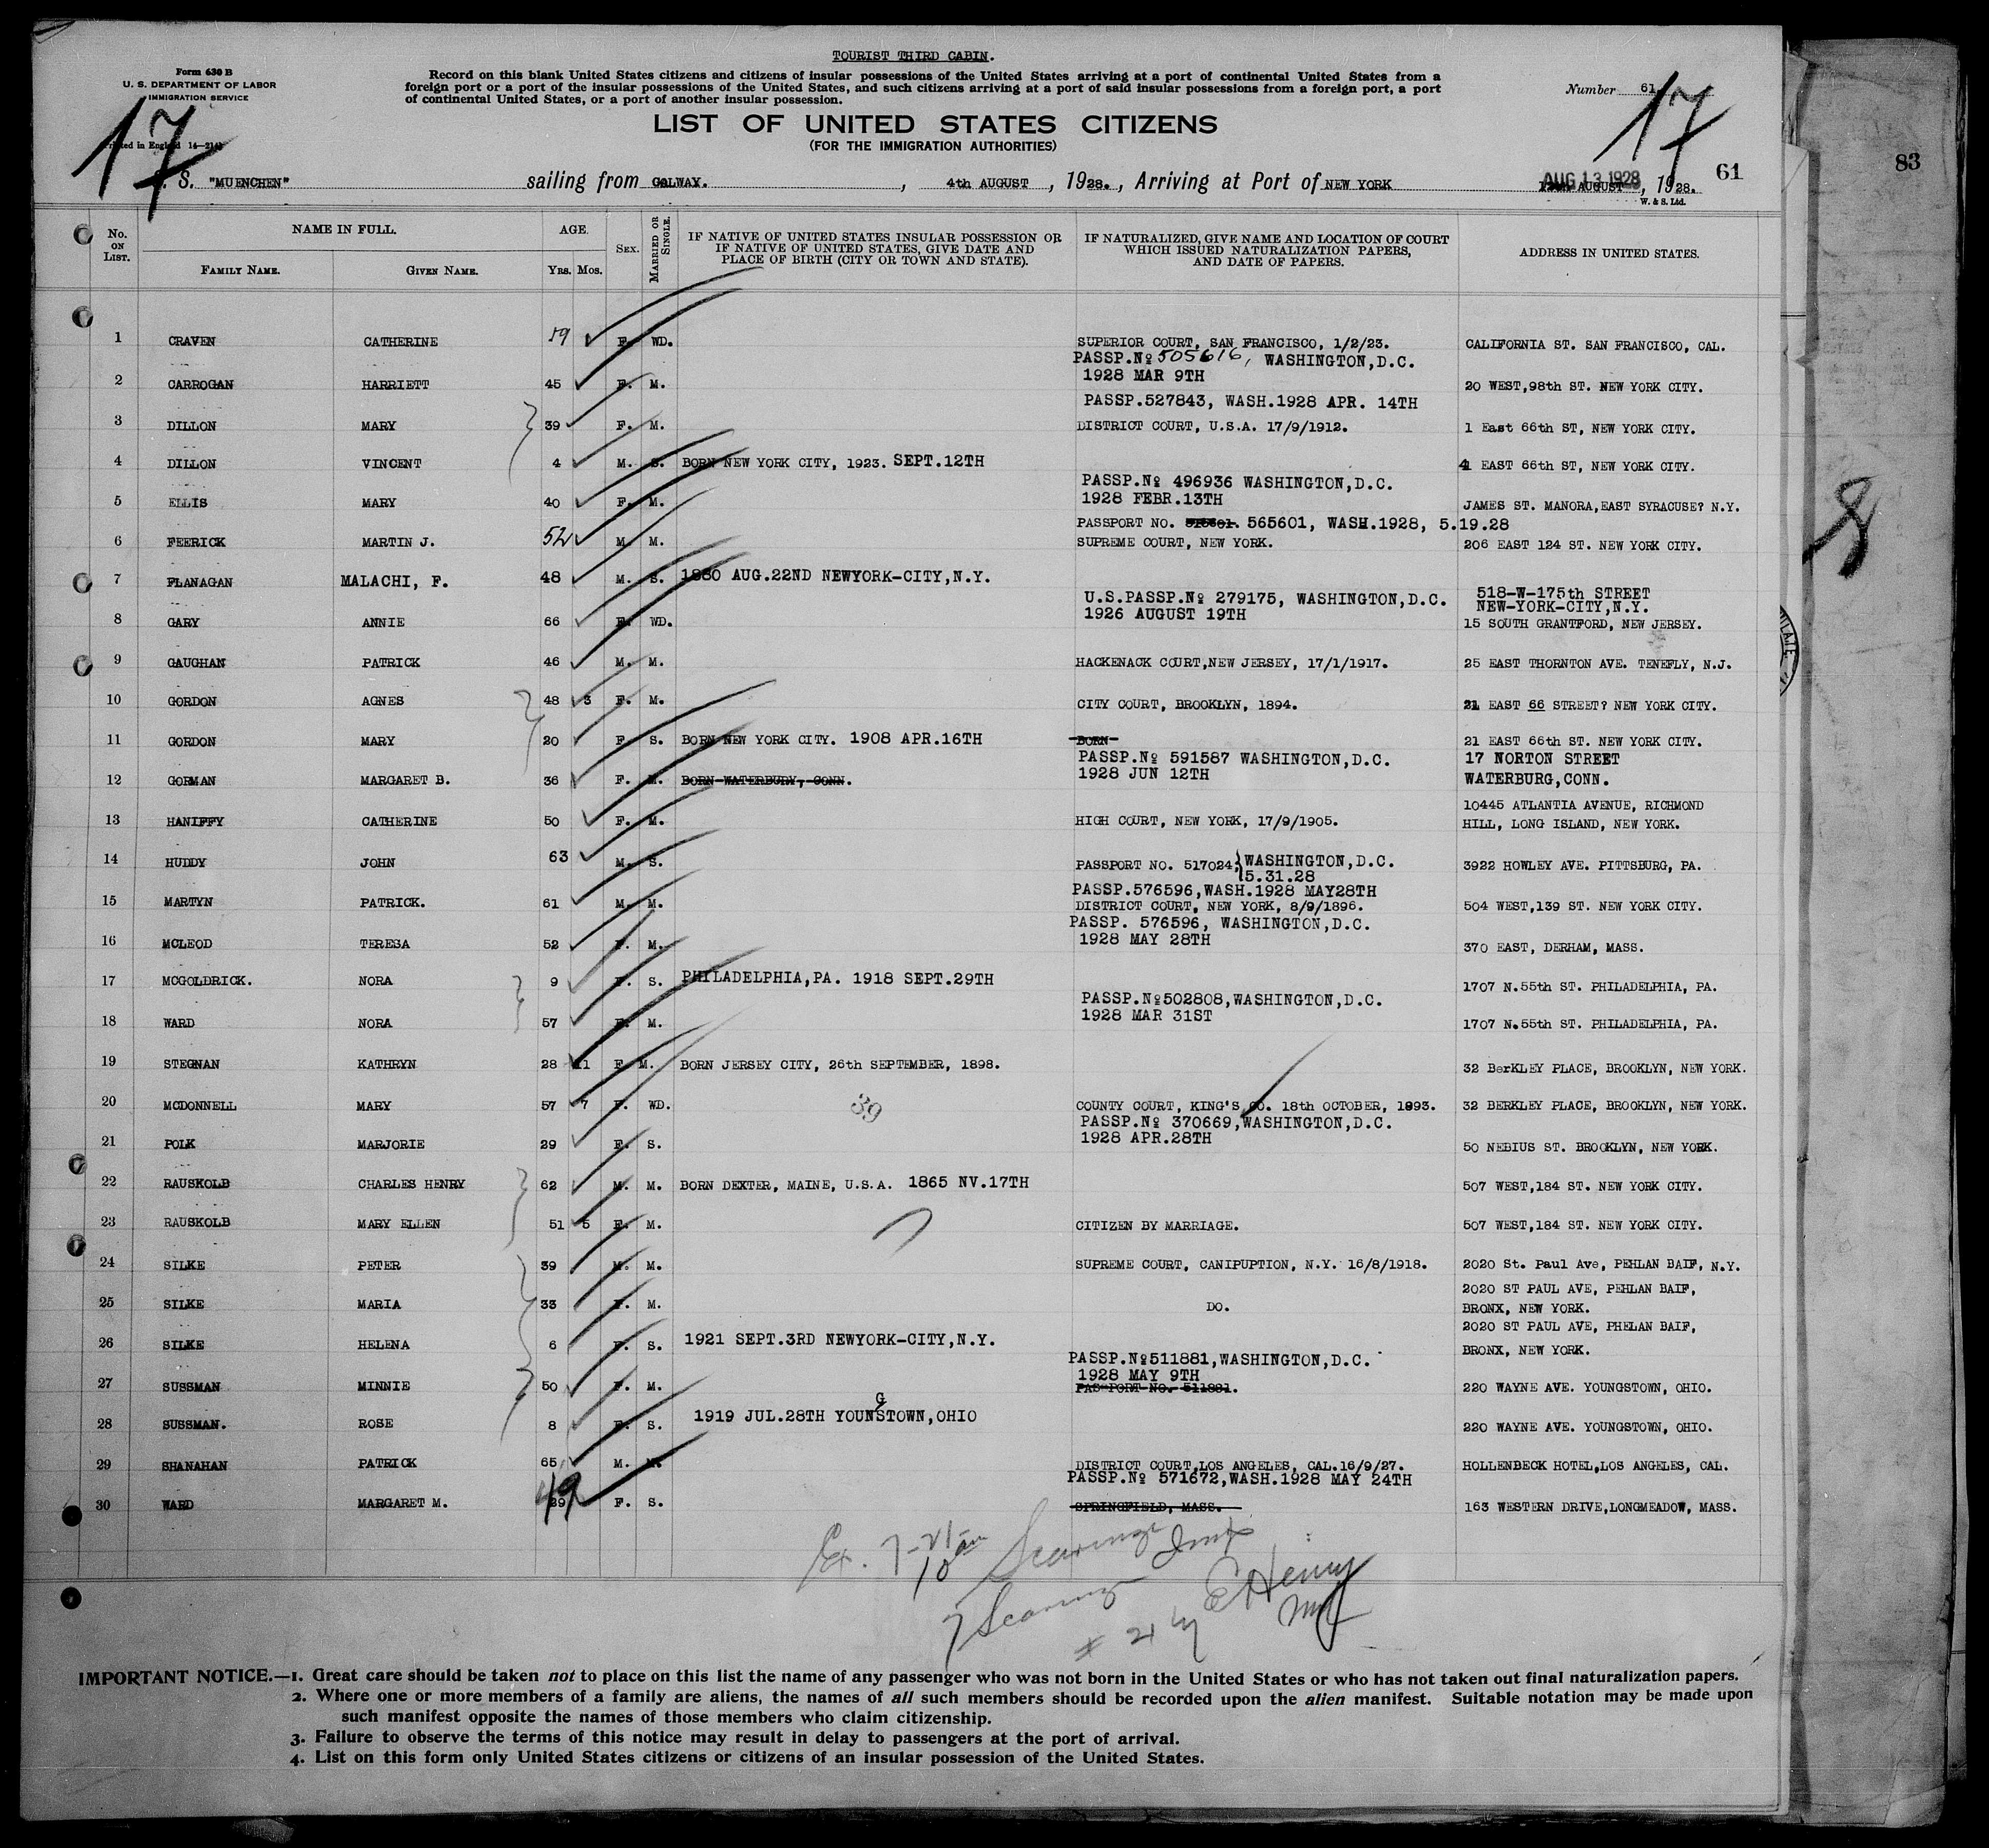 TOURIST THIRD CABIN.
Form 630 B
U. S. DEPARTMENT OF LABOR
IMMIGRATION SERVICE
Record on this blank United States citizens and citizens of insular possessions of the United States arriving at a port of continental United States from a
foreign port or a port of the insular possessions of the United States, and such citizens arriving at a port of said insular possessions from a foreign port, a port
of continental United States, or a port of another insular possession.
Number 61
17
17
LIST OF UNITED STATES CITIZENS
(FOR THE IMMIGRATION AUTHORITIES)
S. "MUENCHEN" sailing from GALWAY. , 4th AUGUST , 1928. , Arriving at Port of NEW YORK AUG 13 1928 AUGUST , 1928.
61
83
W. & S. Ltd.
No. ON LIST. NAME IN FULL. AGE. SEX. MARRIED OR SINGLE. IF NATIVE OF UNITED STATES INSULAR POSSESSION OR IF NATIVE OF UNITED STATES, GIVE DATE AND PLACE OF BIRTH (CITY OR TOWN AND STATE). IF NATURALIZED, GIVE NAME AND LOCATION OF COURT WHICH ISSUED NATURALIZATION PAPERS, AND DATE OF PAPERS. ADDRESS IN UNITED STATES.
FAMILY NAME. GIVEN NAME. YRS. MOS.
1 CRAVEN CATHERINE 59 F. WD. SUPERIOR COURT, SAN FRANCISCO, 1/2/23. CALIFORNIA ST. SAN FRANCISCO, CAL.
PASSP.Nº 505616, WASHINGTON,D.C.
1928 MAR 9TH
2 CARROGAN HARRIETT 45 F. M. 20 WEST,98th ST. NEW YORK CITY.
PASSP.527843, WASH.1928 APR. 14TH
3 DILLON MARY 39 F. M. DISTRICT COURT, U.S.A. 17/9/1912. 1 East 66th ST, NEW YORK CITY.
4 DILLON VINCENT 4 M. S. BORN NEW YORK CITY, 1923. SEPT.12TH 1 EAST 66th ST, NEW YORK CITY.
PASSP.Nº 496936 WASHINGTON,D.C.
1928 FEBR.13TH
5 ELLIS MARY 40 F. M. JAMES ST. MANORA,EAST SYRACUSE? N.Y.
PASSPORT NO. 565601, WASH.1928, 5.19.28
6 FEERICK MARTIN J. 52 M. M. SUPREME COURT, NEW YORK. 206 EAST 124 ST. NEW YORK CITY.
7 FLANAGAN MALACHI, F. 48 M. S. 1880 AUG.22ND NEWYORK-CITY,N.Y. 518-W-175th STREET
NEW-YORK-CITY,N.Y.
U.S.PASSP.Nº 279175, WASHINGTON,D.C.
1926 AUGUST 19TH
8 GARY ANNIE 66 F. WD. 15 SOUTH GRANTFORD, NEW JERSEY.
9 GAUGHAN PATRICK 46 M. M. HACKENACK COURT,NEW JERSEY, 17/1/1917. 25 EAST THORNTON AVE. TENEFLY, N.J.
10 GORDON AGNES 48 3 F. M. CITY COURT, BROOKLYN, 1894. 21 EAST 66 STREET? NEW YORK CITY.
11 GORDON MARY 20 F. S. BORN NEW YORK CITY. 1908 APR.16TH BORN 21 EAST 66th ST. NEW YORK CITY.
PASSP.Nº 591587 WASHINGTON,D.C.
1928 JUN 12TH
12 GORMAN MARGARET B. 36 F. M. BORN WATERBURY, CONN. 17 NORTON STREET
WATERBURG,CONN.
13 HANIFFY CATHERINE 50 F. M. HIGH COURT, NEW YORK, 17/9/1905. 10445 ATLANTIA AVENUE, RICHMOND
HILL, LONG ISLAND, NEW YORK.
14 HUDDY JOHN 63 M. S. PASSPORT NO. 517024, WASHINGTON,D.C. 3922 HOWLEY AVE. PITTSBURG, PA.
5.31.28
PASSP.576596,WASH.1928 MAY28TH
15 MARTYN PATRICK. 61 M. M. DISTRICT COURT, NEW YORK, 8/9/1896. 504 WEST,139 ST. NEW YORK CITY.
PASSP. 576596, WASHINGTON,D.C.
1928 MAY 28TH
16 MCLEOD TERESA 52 F. M. 370 EAST, DERHAM, MASS.
17 MCGOLDRICK. NORA 9 F. S. PHILADELPHIA,PA. 1918 SEPT.29TH 1707 N.55th ST. PHILADELPHIA, PA.
PASSP.Nº502808,WASHINGTON,D.C.
1928 MAR 31ST
18 WARD NORA 57 F. M. 1707 N.55th ST. PHILADELPHIA, PA.
19 STEGNAN KATHRYN 28 11 F. M. BORN JERSEY CITY, 26th SEPTEMBER, 1898. 32 BerKLEY PLACE, BROOKLYN, NEW YORK.
20 MCDONNELL MARY 57 7 F. WD. 39 COUNTY COURT, KING'S CO. 18th OCTOBER, 1893. 32 BERKLEY PLACE, BROOKLYN, NEW YORK.
PASSP.Nº 370669,WASHINGTON,D.C.
1928 APR.28TH
21 POLK MARJORIE 29 F. S. 50 NEBIUS ST. BROOKLYN, NEW YORK.
22 RAUSKOLB CHARLES HENRY 62 M. M. BORN DEXTER, MAINE, U.S.A. 1865 NV.17TH 507 WEST,184 ST. NEW YORK CITY.
23 RAUSKOLB MARY ELLEN 51 5 F. M. CITIZEN BY MARRIAGE. 507 WEST,184 ST. NEW YORK CITY.
24 SILKE PETER 39 M. M. SUPREME COURT, CANIPUPTION, N.Y. 16/8/1918. 2020 St. Paul Ave, PEHLAN BAIF, N.Y.
25 SILKE MARIA 33 F. M. DO. 2020 ST PAUL AVE, PEHLAN BAIF,
BRONX, NEW YORK.
26 SILKE HELENA 6 F. S. 1921 SEPT.3RD NEWYORK-CITY,N.Y. 2020 ST PAUL AVE, PHELAN BAIF,
BRONX, NEW YORK.
PASSP.Nº511881,WASHINGTON,D.C.
1928 MAY 9TH
27 SUSSMAN MINNIE 50 F. M. PASSPORT NO. 511881. 220 WAYNE AVE. YOUNGSTOWN, OHIO.
28 SUSSMAN. ROSE 8 F. S. 1919 JUL.28TH YOUNGSTOWN,OHIO 220 WAYNE AVE. YOUNGSTOWN, OHIO.
29 SHANAHAN PATRICK 65 M. DISTRICT COURT,LOS ANGELES, CAL.16/9/27. HOLLENBECK HOTEL,LOS ANGELES, CAL.
PASSP.Nº 571672,WASH.1928 MAY 24TH
30 WARD MARGARET M. 49 F. S. SPRINGFIELD, MASS. 163 WESTERN DRIVE,LONGMEADOW, MASS.
IMPORTANT NOTICE.—1. Great care should be taken not to place on this list the name of any passenger who was not born in the United States or who has not taken out final naturalization papers.
2. Where one or more members of a family are aliens, the names of all such members should be recorded upon the alien manifest. Suitable notation may be made upon
such manifest opposite the names of those members who claim citizenship.
3. Failure to observe the terms of this notice may result in delay to passengers at the port of arrival.
4. List on this form only United States citizens or citizens of an insular possession of the United States.